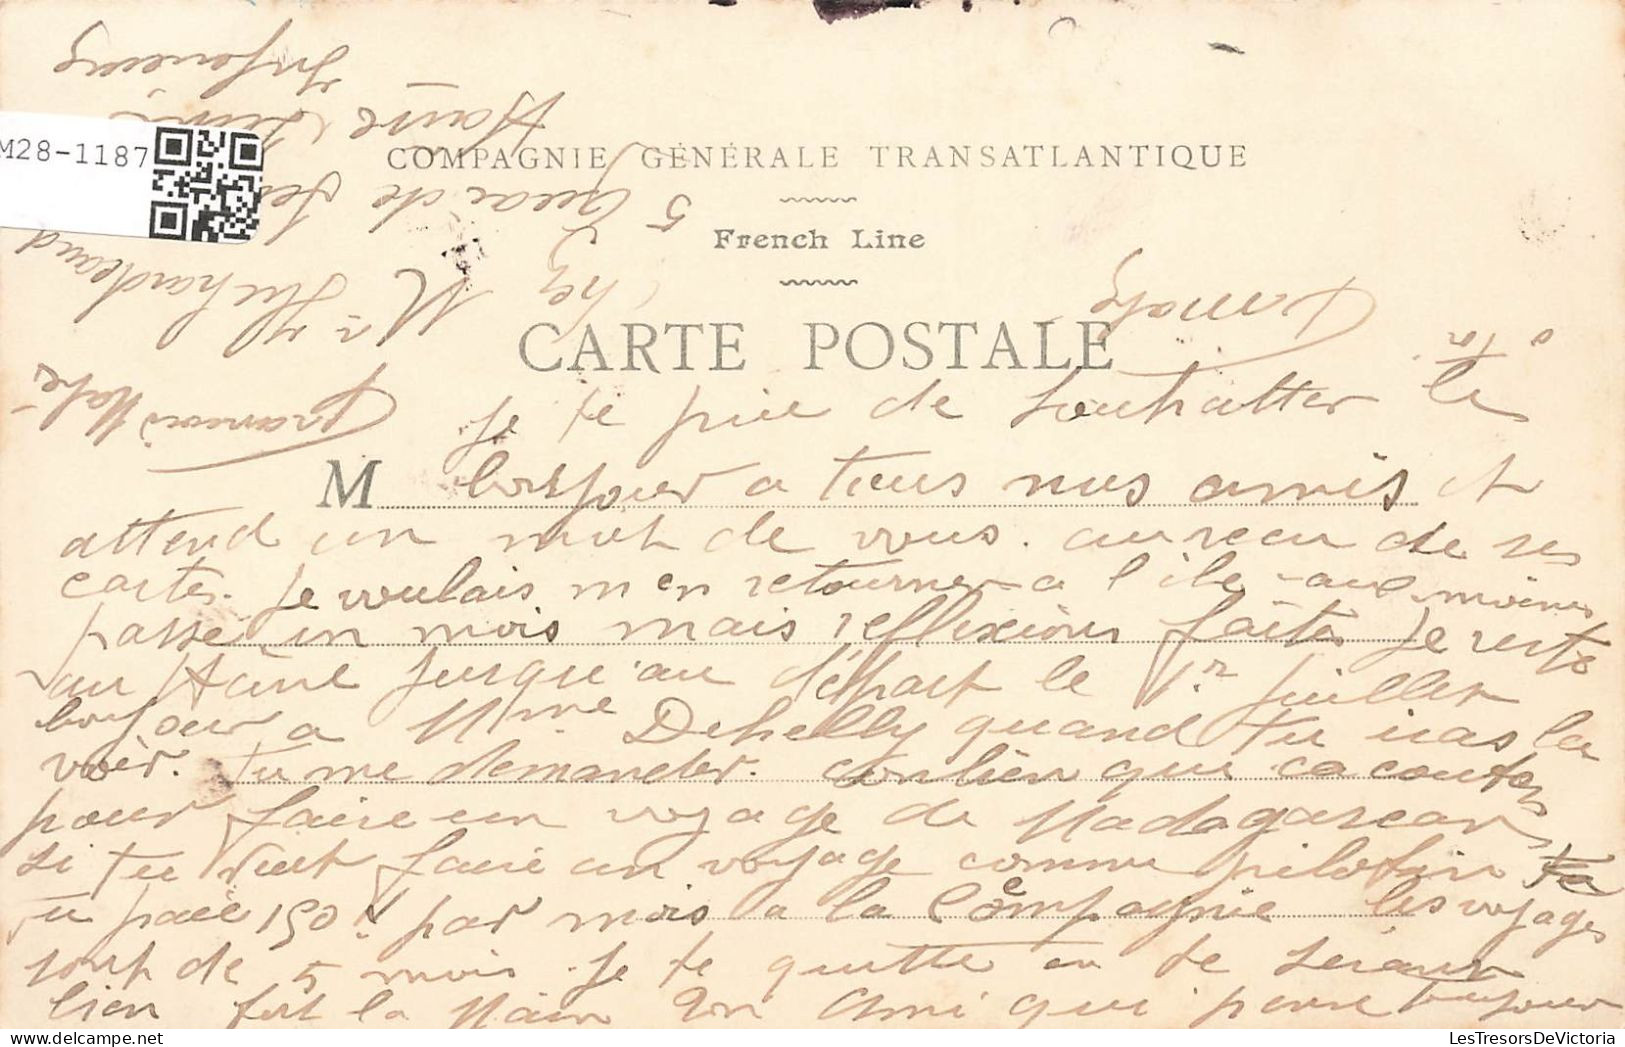 M28-1187
COMPAGNIE GÉNÉRALE TRANSATLANTIQUE
French Line
CARTE POSTALE
M
Je te prie de souhaitter les
bonjour a tous nos amis et
attend un mot de vous. au recu de ses
cartes. Je voulais m'en retourner a l'ile-aux-moines
passé un mois mais reflexions faites je reste
au Havre jusqu'au départ le 1er juillet
bonjour a Mme Dehelly quand tu iras la
voir. tu me demander. conbien que ca coute
pour faire un voyage de Madagascar
si tu veut faire un voyage comme pilotin
tu paie 150f par mois a la Compagnie les voyages
sont de 5 mois. Je te quitte en te serrant
bien fort la Main Ton Ami qui pense toujours
à toi
François Mahé
Chez Mr Huchardeaud
5 Quai de
Havre
Inferieure
LesTresorsDeVictoria